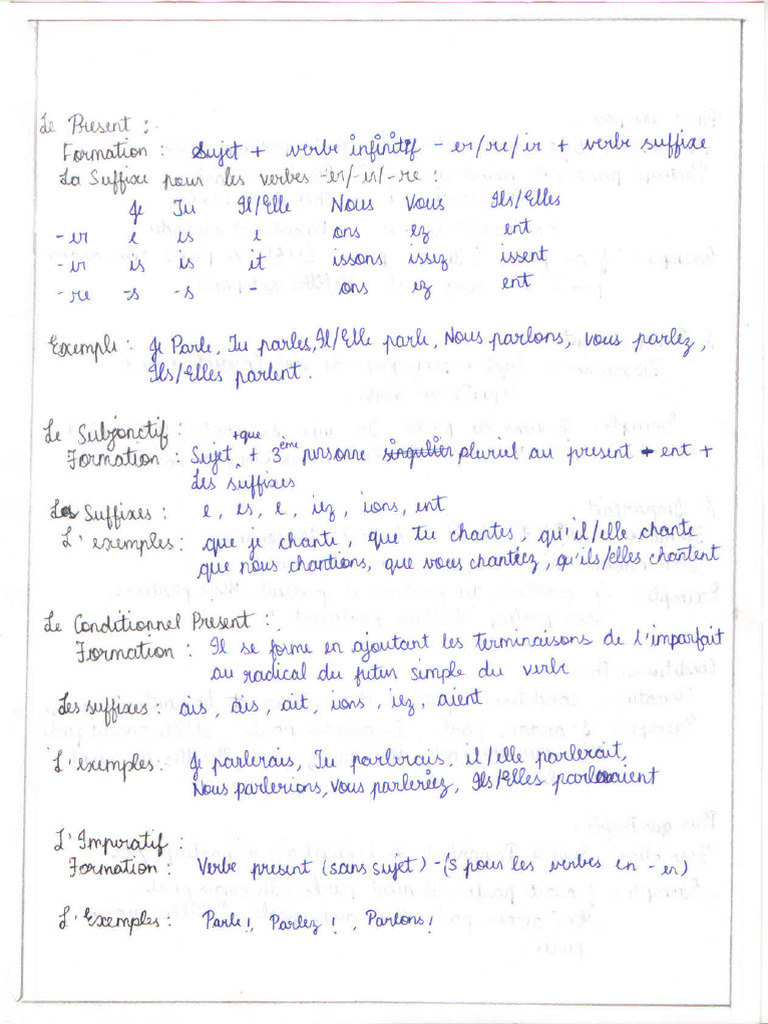 Le Present :
Formation : Sujet + verbe infinitif - er/re/ir + verbe suffixe
La Suffixe pour les verbes -er/-ir/-re :
Je Tu Il/Elle Nous Vous Ils/Elles
-er e es e ons ez ent
-ir is is it issons issez issent
-re -s -s - ons ez ent
Exemple : Je Parle, Tu parles, Il/Elle parle, Nous parlons, vous parlez,
Ils/Elles parlent.
Le Subjonctif
+que
Formation : Sujet + 3ème personne singulier pluriel au present - ent +
Les suffixes
Les Suffixes : e, es, e, iez, ions, ent
L'exemples : que je chante, que tu chantes, qu'il/elle chante
que nous chantions, que vous chantiez, qu'ils/elles chantent
Le Conditionnel Present :
Formation : Il se forme en ajoutant les terminaisons de l'imparfait
au radical du futur simple du verbe
Les suffixes : ais, ais, ait, ions, iez, aient
L'exemples : Je parlerais, Tu parlerais, il/elle parlerait,
Nous parlerions, vous parleriez, Ils/Elles parleraient
L'Imperatif :
Formation : Verbe present (sans sujet) -(s pour les verbes en -er)
L'Exemples : Parle!, Parlez!, Parlons!